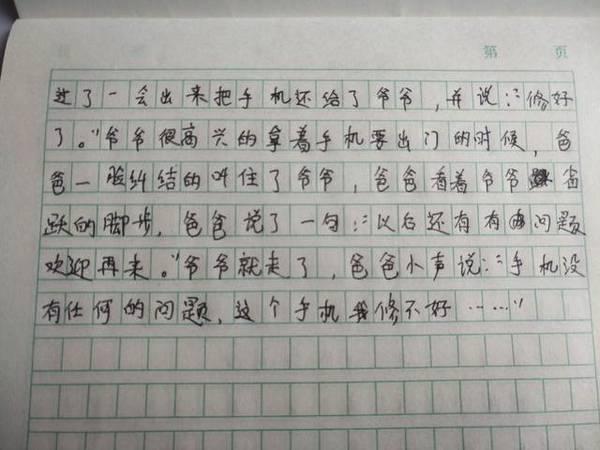 第 页
过了一会出来把手机还给了爷爷，并说：“修好
了。”爷爷很高兴的拿着手机要出门的时候，爸
爸一脸纠结的叫住了爷爷，爸爸看着爷爷蹒
跃的脚步，爸爸说了一句：“以后还有有问题
欢迎再来。”爷爷就走了，爸爸小声说：“手机没
有任何的问题，这个手机我修不好……”